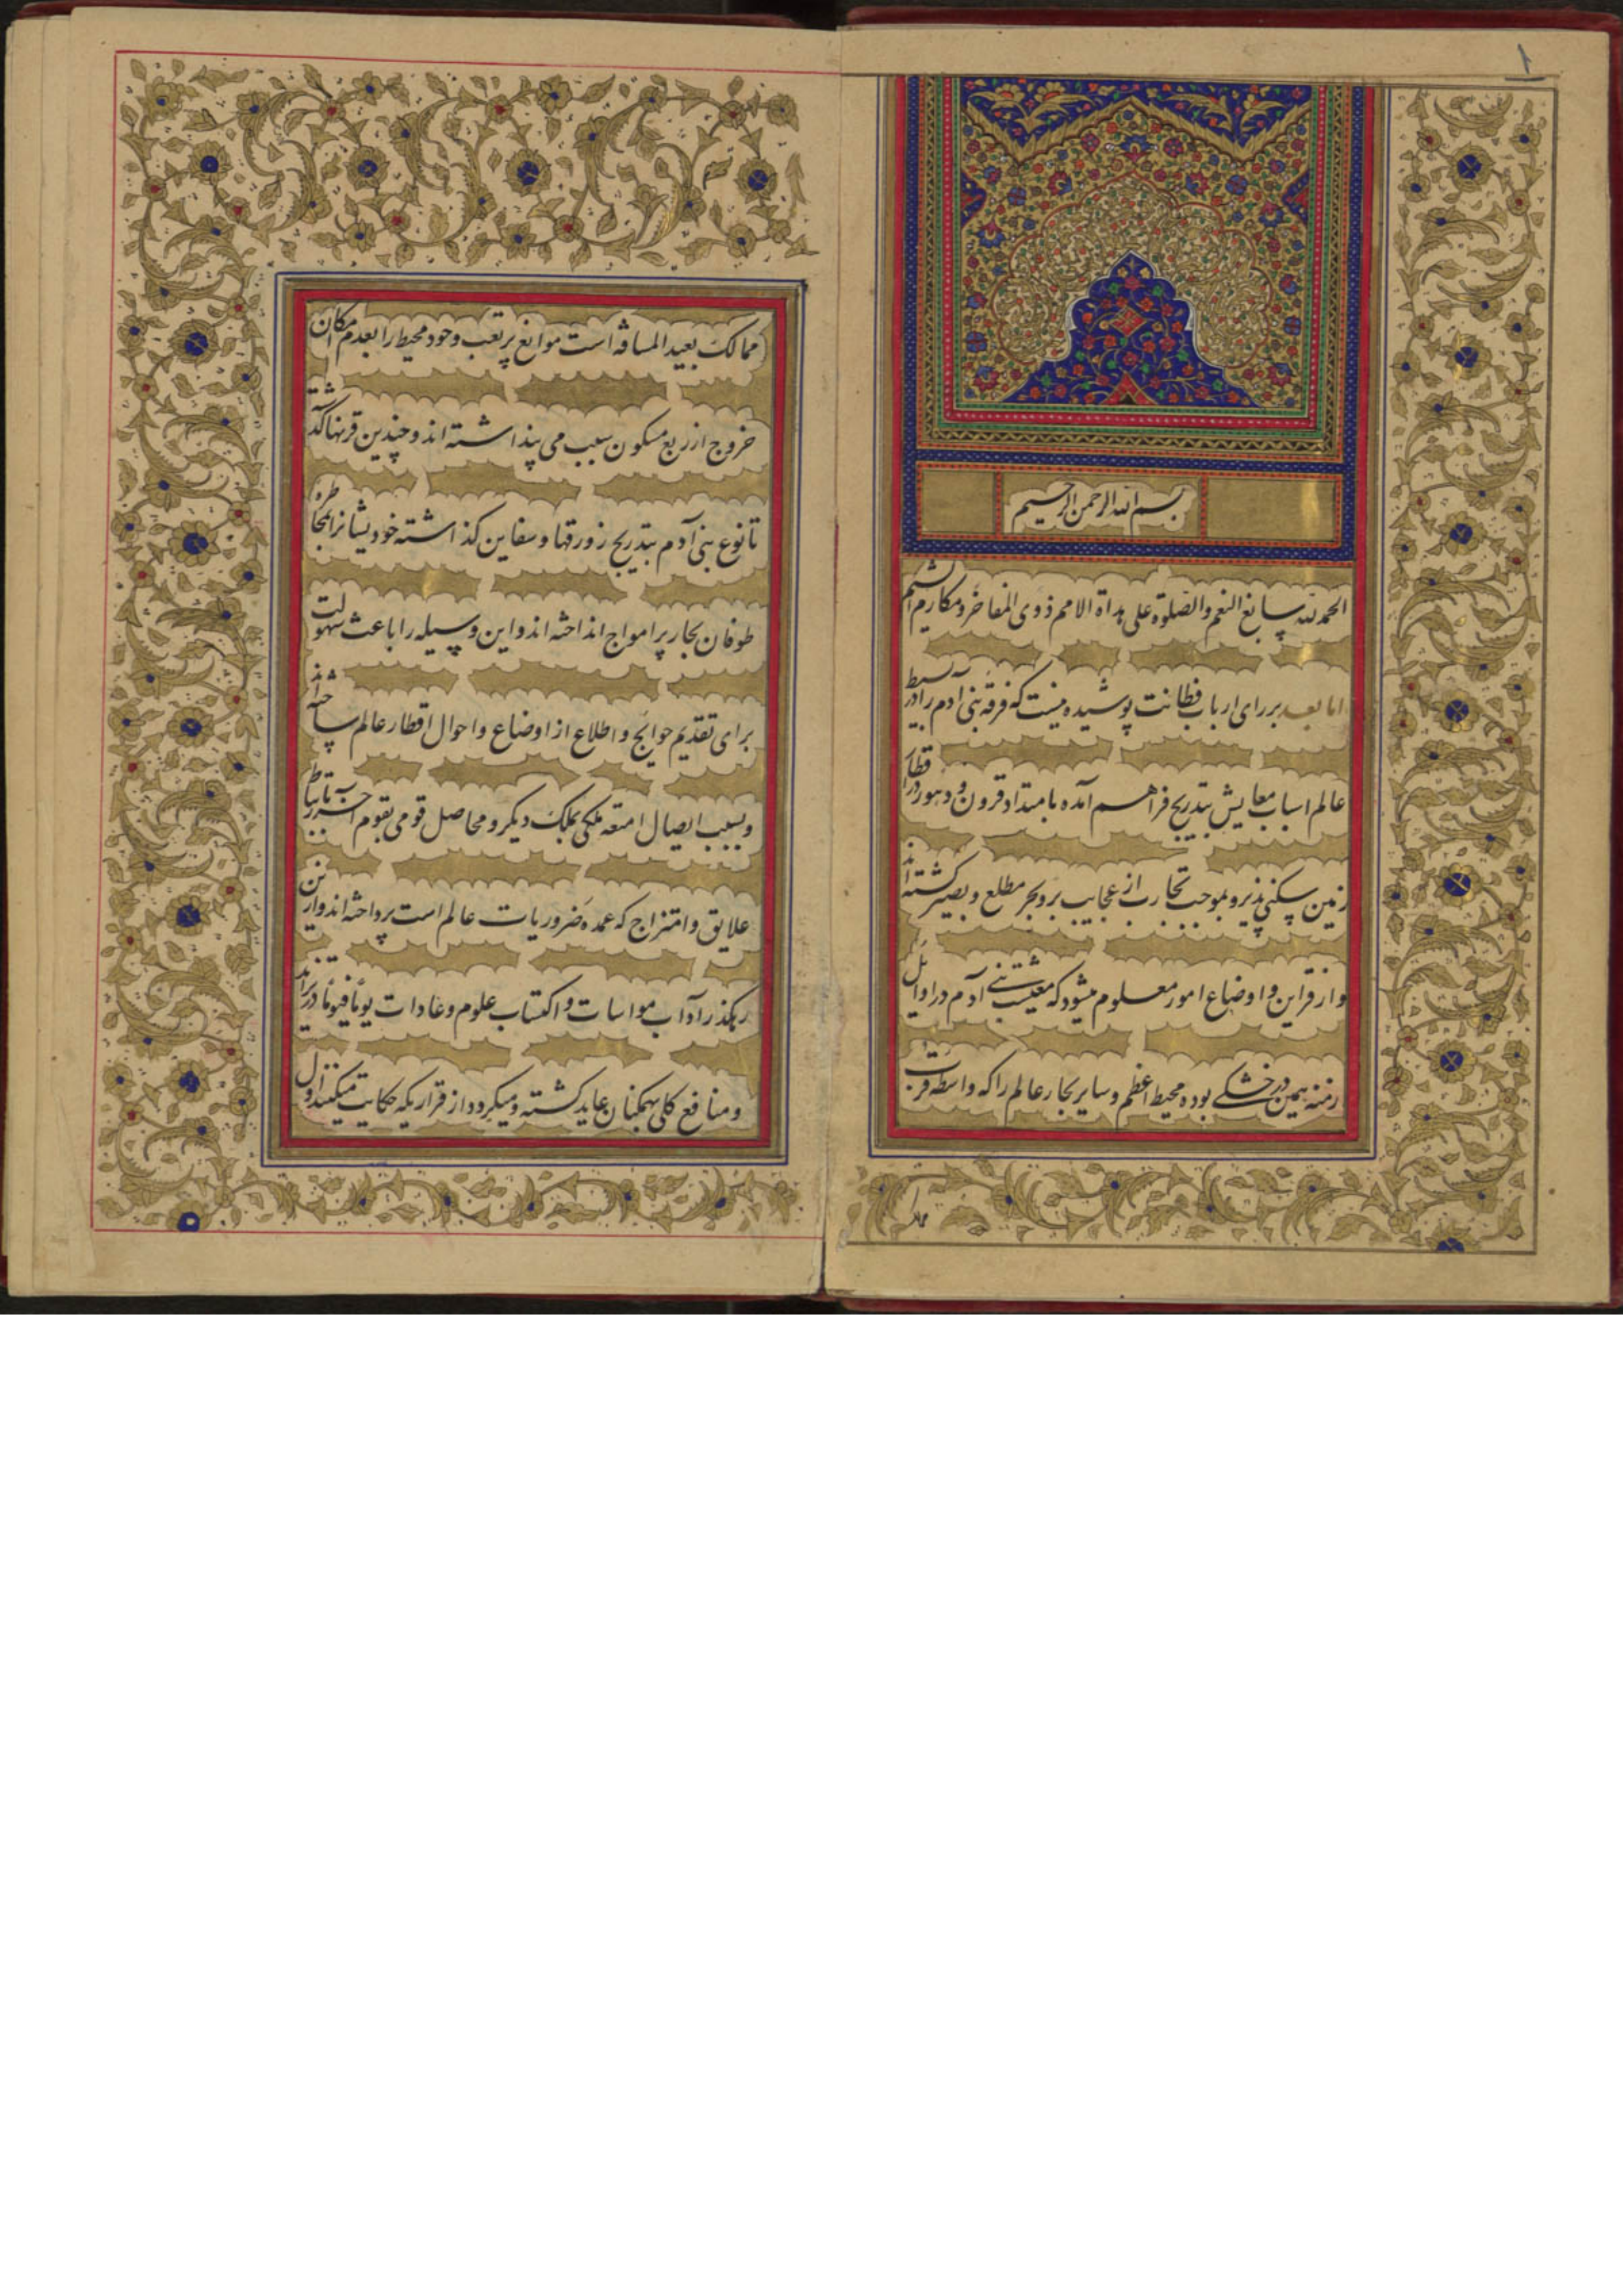 ۱
بسم الله الرحمن الرحیم
الحمدلله سابغ النعم والصلوة علی هداة الامم ذوی المفاخر و مکارم الشیم
اما بعد بر رای ارباب فطانت پوشیده نیست که فرقه بنی آدم را در بسیط
عالم اسباب معایش بتدریج فراهم آمده بامتداد قرون و دهور در اقطار
زمین سکنی پذیر و بموجب تجارب از عجایب بر و بحر مطلع و بصیر کشته‌اند
و از قراین و اوضاع امور معلوم میشود که معیشت بنی آدم در اوایل
ازمنه همین در خشکی بوده محیط اعظم و سایر بحار عالم را که واسطه قربت
ممالک
ممالک بعید المسافه است موانع پر تعب و حود محیط را بعدم امکان
خروج از ربع مسکون سبب می پنداشته اند و چندین قرنها کذشته
تا نوع بنی آدم بتدریج زورقها و سفاین کذاشته خودیشانرا بمخاطره
طوفان بحار پر امواج انداخته اند و این وسیله را باعث سهولت
برای تقدیم حوایج و اطلاع از اوضاع و احوال اقطار عالم ساخته‌اند
و بسبب ایصال امتعه ملکی بملک دیکر و محاصل قومی بقوم آخر بارتباط
علایق و امتزاج که عمده ضروریات عالم است پرداخته اند و از این
رهکذر آداب مواسات و اکتساب علوم و عادات یوما فیوما در تزاید
و منافع کلی بهمکنان عاید کشته و میکردد از قراریکه حکایت میکنند اول